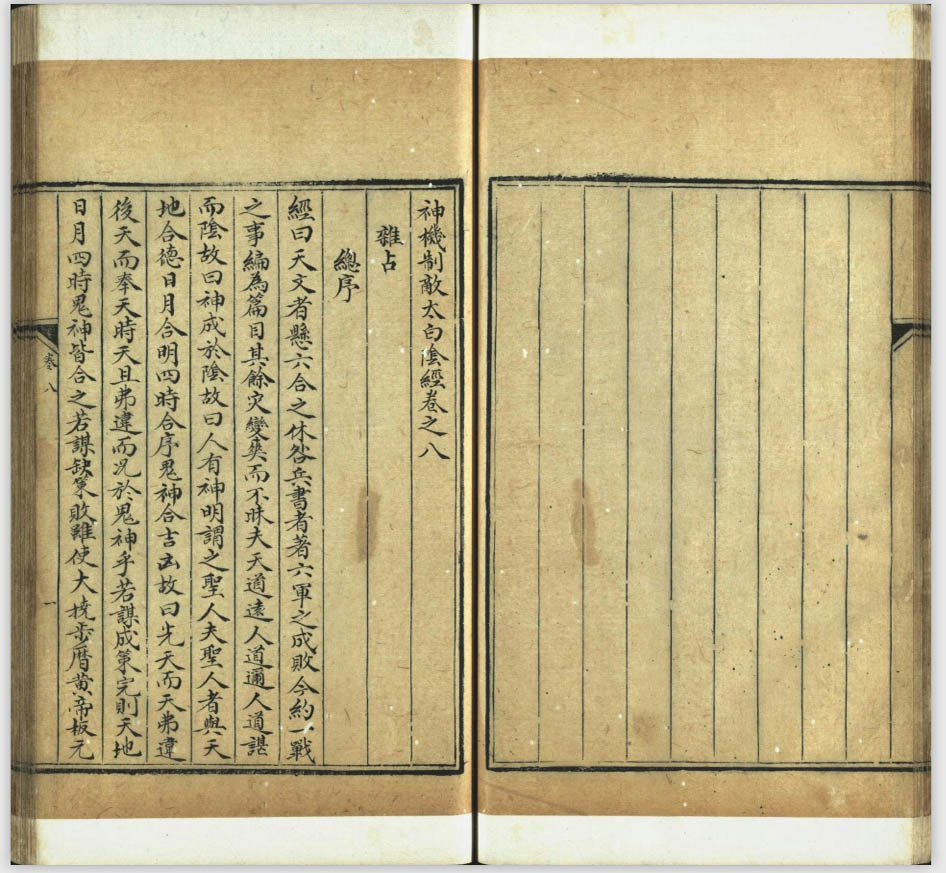 神機制敵太白陰經卷之八
雜占
總序
經曰天文者懸六合之休咎兵書者著六軍之成敗今約一戰
之事編為篇目其餘灾變奕而不昧夫天道遠人道邇人道諶
而陰故曰神成於陰故曰人有神明謂之聖人夫聖人者與天
地合德日月合明四時合序鬼神合吉凶故曰先天而天弗違
後天而奉天時天且弗違而况於鬼神乎若謀成策完則天地
日月四時鬼神皆合之若謀缺策敗雖使大撓步曆黄帝板元
卷八
一